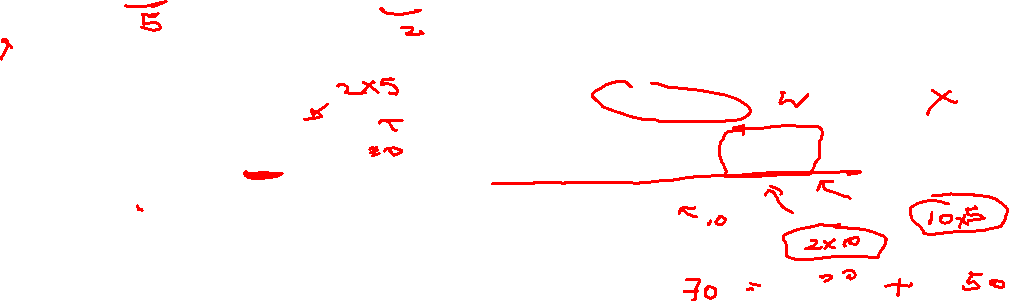 5 2
2×5
W X
10
10×5
2×10
70 = 20 + 50